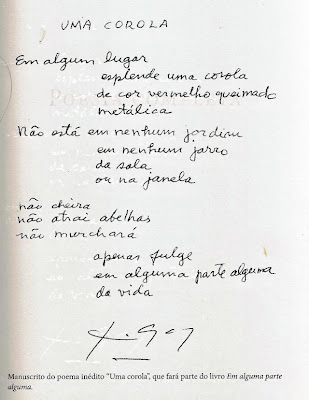 UMA COROLA
Em algum lugar
esplende uma corola
de cor vermelho queimado
metálica
Não está em nenhum jardim
em nenhum jarro
da sala
ou na janela
não cheira
não atrai abelhas
não murchará
apenas fulge
em alguma parte alguma
da vida
Manuscrito do poema inédito "Uma corola", que fará parte do livro Em alguma parte
alguma.